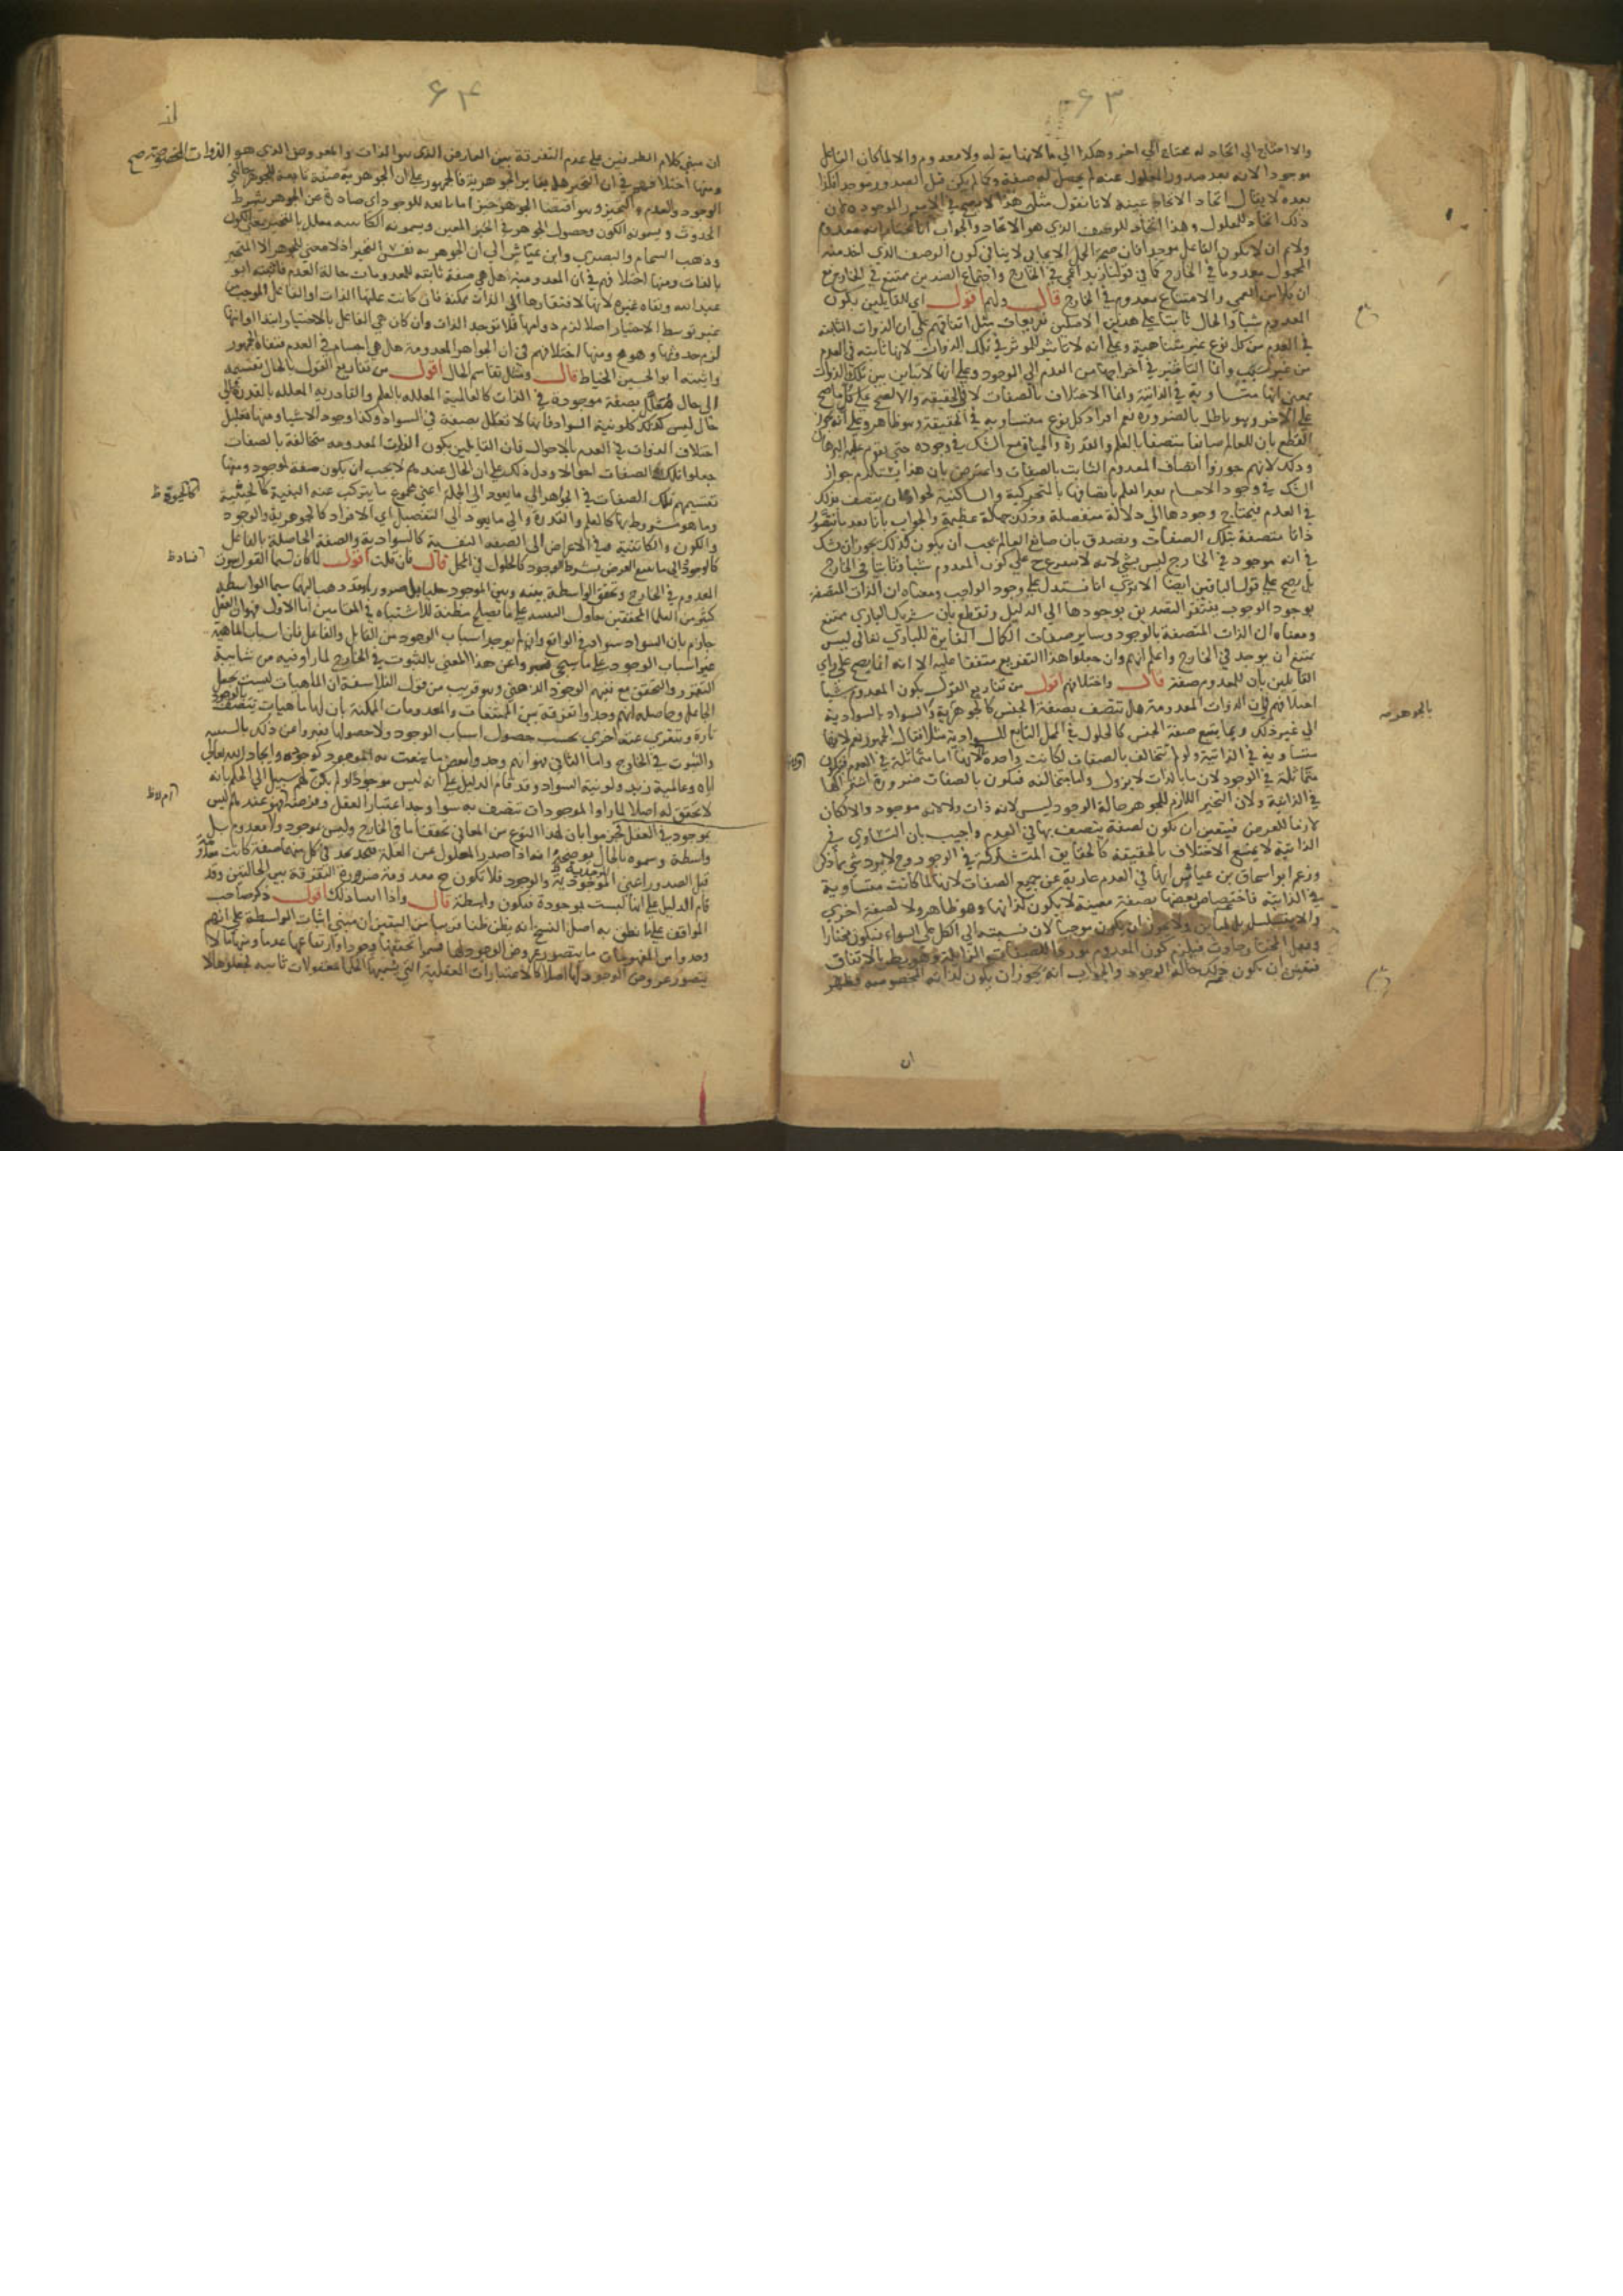 ۶۳
والا احتاج الى اتحاد له محتاج الى اخر وهكذا الى ما لا نهاية له ولا معدوم والا لما كان الفاعل
موجدا لانه بعد صدور المعلول عنه لم يحصل له صفة وكما لم يكن قبل الصدور موجدا فكذا
بعده لا يقال اتحاد الاتحاد عينه لانا نقول مثل هذا لا يصح في الامور الموجودة
ذلك اتحاد للمعلول وهذا اتحاد للوصف الذي هو الاتحاد والجواب انا نختار انه معدوم
ولا م ان لا يكون الفاعل موجدا فان صحة الحمل الايجابي لا ينافي كون الوصف الذي اخذ منه
المحمول معدوما في الخارج كما في قولنا زيد اعمى في الخارج واجتماع الضدين ممتنع في الخارج مع
ان كلا من العمى والامتناع معدوم في الخارج قال ولهم اقول اي للقايلين بكون
المعدوم شيا والحال ثابتا على هذين الاصلين تفريعات مثل اتفاقهم على ان الذوات الثابتة
في العدم من كل نوع غير متناهية وعلى انه لا تاثير للموثر في تلك الذوات لانها ثابته في العدم
من غير سبب وانما التاثير في اخراجها من العدم الى الوجود وعلى انها لا تباين بين تلك الذوات
بمعنى انها متساوية في الذاتية وانما الاختلاف بالصفات لا في الحقيقة والا لصح على كل ما صح
على الاخر وهو باطل بالضرورة نعم افراد كل نوع متساوية في الحقيقة وهو ظاهر وعلى انه يجوز
القطع بان للعالم صانعا متصفا بالعلم والقدرة والحياة مع الشك في وجوده حتى يقوم عليه البرهان
وذلك لانهم جوزوا اتصاف المعدوم الثابت بالصفات واعترض بان هذا يستلزم جواز
الشك في وجود الاجسام بعد العلم باتصافها بالمتحركية والساكنية لجواز ان يتصف بذلك
في العدم فيحتاج وجودها الى دلالة منفصلة وذلك جهالة عظيمة والجواب بانا بعد ما نتصور
ذاتا متصفة بتلك الصفات ونصدق بان صانع العالم يجب ان يكون كذلك يجوز ان نشك
في انه موجود في الخارج ليس بشي لانه لا يتفرع ح على كون المعدوم شيا وثابتا في الخارج
بل يصح على قول الباقين ايضا الا ترى انا نستدل على وجود الواجب ومعناه ان الذات المتصفة
بوجود الوجوب يفتقر التصديق بوجودها الى الدليل ونقطع بان شريك الباري ممتنع
ومعناه ان الذات المتصفة بالوجود وساير صفات الكمال المغايرة للباري تعالى ليس
يمتنع ان يوجد في الخارج واعلم انهم وان جعلوا هذا التفريع متفقا عليه الا انه انما يصح على راي
القايلين بان للمعدوم صفة قال واختلافهم اقول من تفاريع القول بكون المعدوم شيا
اختلافهم في ان الذوات المعدومة هل تتصف بصفة الجنس كالجوهرية والسواد بالسوادية
الى غير ذلك وبما يتبع صفة الجنس كالحلول في المحل التابع للسوادية مثلا فقال الجمهور نعم لانها
متساوية في الذاتية ولو لم تتخالف بالصفات لكانت واحدة ولانها اما متماثلة في العدم فتكون
متماثلة في الوجود لان ما بالذات لا يزول واما متخالفة فيكون بالصفات ضرورة اشتراكها
في الذاتية ولان التحيز اللازم للجوهر حالة الوجود ليس لانه ذات ولا لانه موجود والا لكان
لازما للعرض فيتعين ان يكون لصفة يتصف بها في العدم واجيب بان التساوي في
الذاتية لا يمنع الاختلاف بالحقيقة كالحقايق المتشاركة في الوجود وح لا يرد شي مما ذكر
وزعم ابو اسحاق بن عياش انها في العدم عارية عن جميع الصفات لانها لما كانت متساوية
في الذاتية فاختصاص بعضها بصفة معينة لا يكون لذاتها وهو ظاهر ولا لصفة اخرى
والا يتسلسل بل لمباين ولا يجوز ان يكون موجبا لان نسبته الى الكل على السواء فيكون مختارا
وفعل المختار حادث فيلزم كون المعدوم موردا للصفات المتزايلة وهو باطل بالاتفاق
فتعين ان يكون ذلك حالة الوجود والجواب انه يجوز ان يكون لذاته المخصوصة فظهر
بالجوهرية
ان
۶۴
ان مبنى كلام الطرفين على عدم التفرقة بين العارض الذي هو الذات والمعروض الذي هو الذوات المخصوصة صح
ومنها اختلافهم في ان التحيز هل يغاير الجوهرية فالجمهور على ان الجوهرية صفة تابعة للجوهر حالتي
الوجود والعدم والتحيز وهو اقتضا الجوهر حيزا ما تابعه للوجود اي صادرة عن الجوهر بشرط
الحدوث ويسمونه الكون وحصول الجوهر في الحيز المعين ويسمونه الكاينية معلل بالتحيز بمعنى الكون
وذهب الشحام والبصري وابن عياش الى ان الجوهرية نفس التحيز اذ لا معنى للجوهر الا المتحيز
بالذات ومنها اختلافهم في ان المعدومية هل هي صفة ثابته للمعدومات حالة العدم فاثبته ابو
عبد الله ونفاه غيره لانها لافتقارها الى الذات ممكنة فان كانت علتها الذات او الفاعل الموجب من
غير توسط الاختيار اصلا لزم دوامها فلا توجد الذات وان كان هي الفاعل بالاختيار ابتدا او انتها
لزم حدوثها وهو مح ومنها اختلافهم في ان الجواهر المعدومة هل هي اجسام في العدم فنفاه الجمهور
واثبته ابو الحسين الخياط قال ومثل تقاسم الحال اقول من تفاريع القول بالحال تقسيمه
الى حال معلل بصفة موجودة في الذات كالعالمية المعلله بالعلم والقادرية المعلله بالقدرة والى
حال ليس كذلك كلونية السواد فانها لا تعلل بصفة في السواد وكذا وجود الاشيا ومنها تعليل
اختلاف الذوات في العدم بالاحوال فان القايلين بكون الذوات المعدومه متخالفة بالصفات
جعلوا تلك الصفات احوالا ودل ذلك على ان الحال عندهم لا يجب ان يكون صفة لموجود ومنها
تقسيمهم تلك الصفات في الجواهر الى ما يعود الى الجملة اعني مجموع ما يتركب عنه البنية كالحيية
وما هو مشروط بها كالعلم والقدرة والى ما يعود الى التفصيل اي الافراد كالجوهرية والوجود
والكون والكاينية وفي الاعراض الى الصفة النفسية كالسوادية والصفة الحاصلة بالفاعل
كالوجود والى ما يتبع العرض بشرط الوجود كالحلول في المحل قال فان قلت اقول لما كان القول بكون
المعدوم في الخارج وتحقق الواسطة بينه وبين الموجود جليا بل ضروريا وقد ذهب اليهما سيما الواسطه
كثير من العلما المحققين حاول المصنف على ما يصلح مظنة للاشتباه في المقامين اما الاول فهو ان العقل
جازم بان السواد سواد في الواقع وان لم يوجد اسباب الوجود من القابل والفاعل فان اسباب الماهية
غير اسباب الوجود على ما سيجي فعبروا عن هذا المعنى بالثبوت في الخارج لما راوا فيه من شايبة
التقرر والتحقق مع نفيهم الوجود الذهني وهو قريب من قول الفلاسفة ان الماهيات ليست بجعل
الجاعل وحاصله انهم وجدوا تفرقة بين الممتنعات والمعدومات الممكنة بان لها ماهيات تتصف بالوجود
تارة وتتعرى عنه اخرى بحسب حصول اسباب الوجود ولا حصولها فعبروا عن ذلك بالشيئية
والثبوت في الخارج واما الثاني فهو انهم وجدوا بعض ما ينعت به الموجود كوجوده وايجاد الله تعالى
اياه وعالمية زيد ولونية السواد وقد قام الدليل على انه ليس موجودا ولم يكن لهم سبيل الى الحكم بانه
لا تحقق له اصلا لما راوا الموجودات تتصف به سوا وجد اعتبار العقل وفرضه فهو عندهم ليس
بموجود في العقل فجزموا بان لهذا النوع من المعاني تحققا ما في الخارج وليس بموجود ولا معدوم بل
واسطة وسموه بالحال يوضحه انه اذا صدر المعلول عن العلة فنجد بعد في كل منهما صفة كانت معدومة
قبل الصدور اعني الموجدية والوجود فلا تكون ح معدومة ضرورة التفرقة بين الحالتين وقد
قام الدليل على انها ليست بموجودة فيكون واسطة قال واذا اقول ذكر صاحب
المواقف على ما نطق به اصل النسخ انه يظن ظنا قريبا من اليقين ان مبنى اثبات الواسطة على انهم
وجدوا من المفهومات ما يتصور عروض الوجود لها فسموا تحققها وجودا وارتفاعها عدما ومنها ما لا
يتصور عروض الوجود لها اصلا كالاعتبارات العقلية التي يسميها الحكما معقولات ثانيه فجعلوها لا